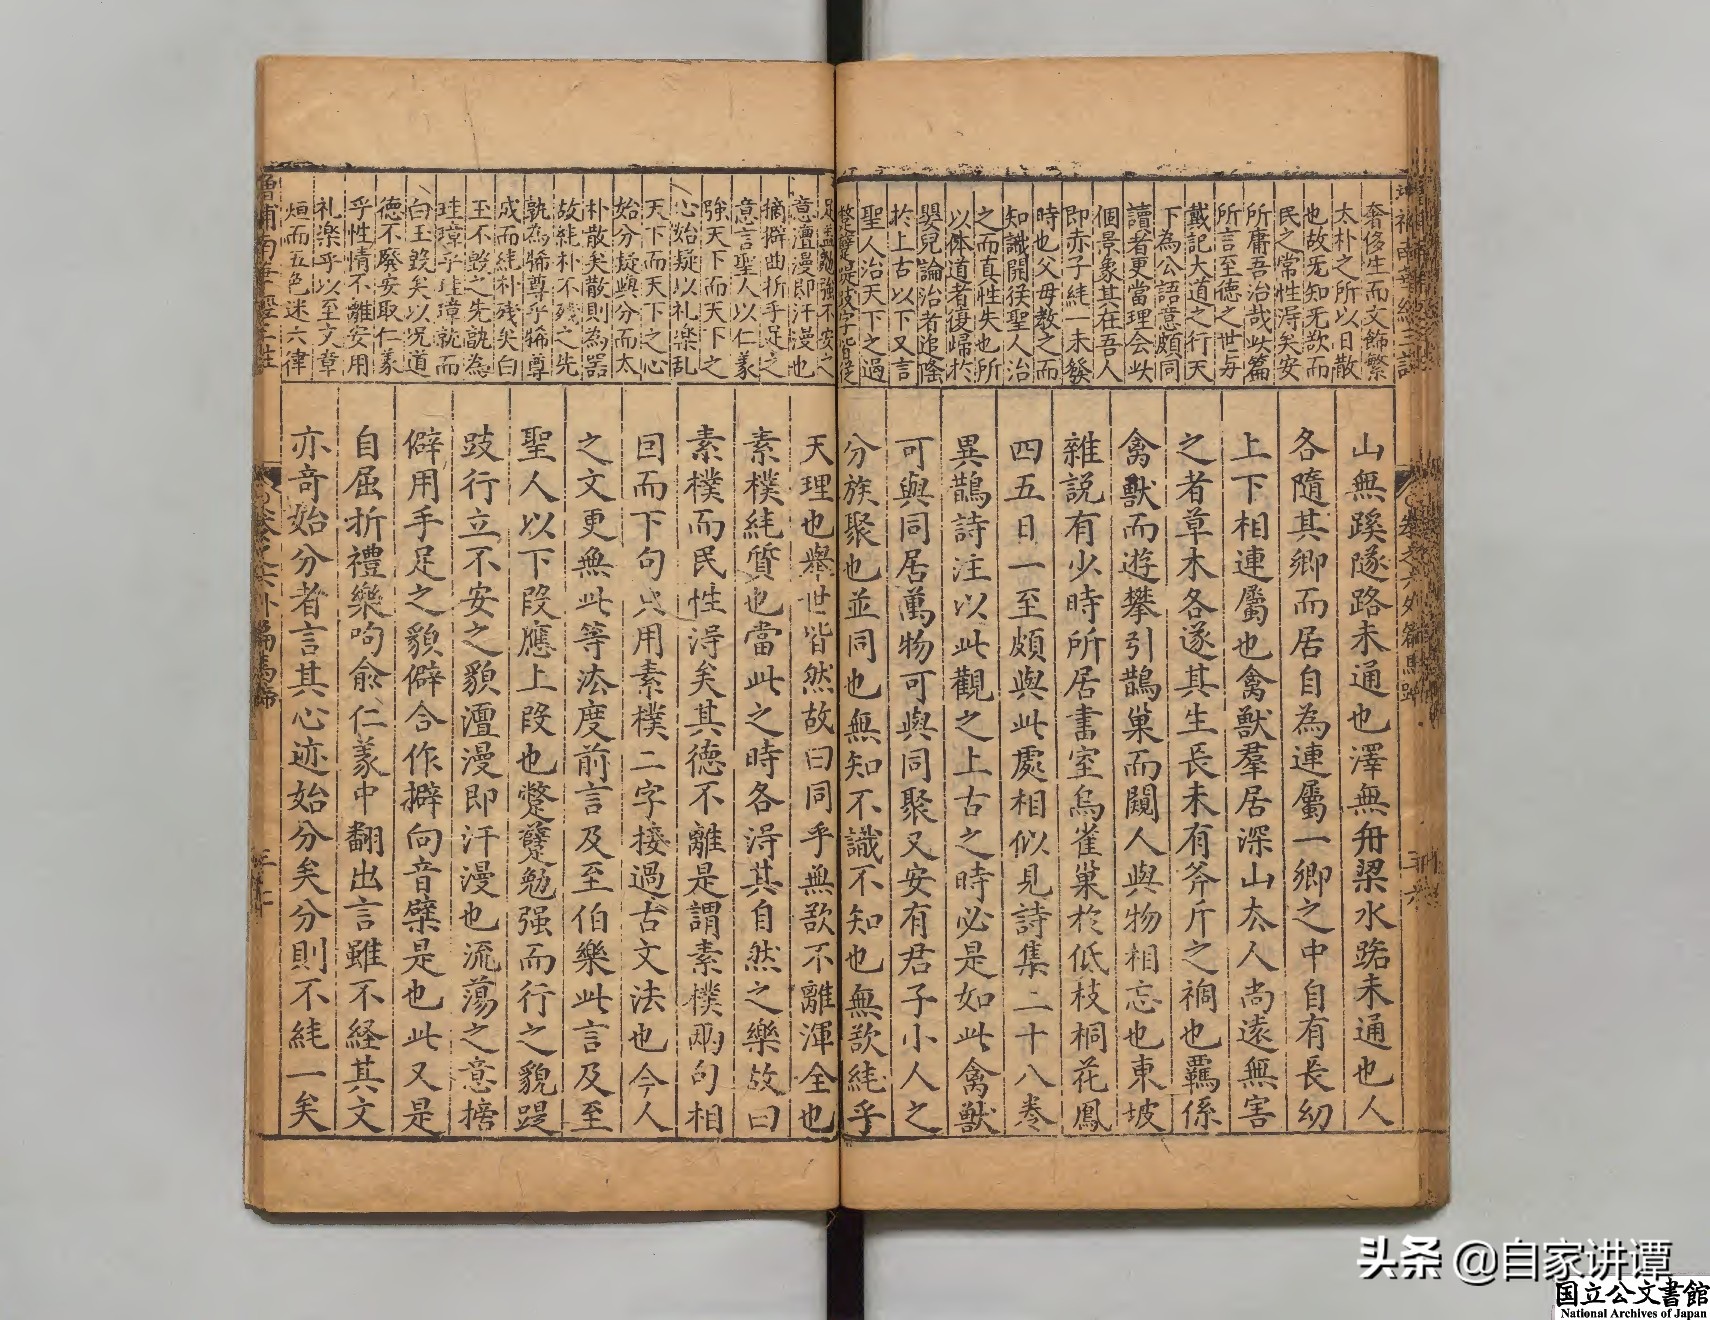 奢侈生而文飾繁
太朴之所以日散
也故旡知旡欲而
民之常性淂矣安
所庸吾治哉此篇
所言至德之世与
戴記大道之行天
下為公語意頗同
讀者更當理会此
個景象其在吾人
即赤子純一未發
時也父母教之而
知識開矦聖人治
之而真性失也所
以体道者復歸於
嬰兒論治者追隆
於上古以下又言
聖人治天下之過
蹩躠踶跂字皆從
足盖勉強不安之
意澶漫即汗漫也
摘僻曲折手足之
意言聖人以仁義
強天下而天下之
心始疑以礼楽乱
天下而天下之心
始分疑與分而太
朴散矣散則為器
故純朴不残之先
孰為犧尊乎犧尊
成而純朴残矣白
玉不毀之先孰為
珪璋乎珪璋就而
白玉毀矣以况道
德不廢安取仁義
乎性情不離安用
礼楽乎以至文章
烜而五色迷六律
山無蹊隧路未通也澤無舟梁水路未通也人
各隨其鄉而居自為連屬一鄉之中自有長幼
上下相連屬也禽獸羣居深山太人尚遠無害
之者草木各遂其生長未有斧斤之禍也羈係
禽獸而遊攀引鵲巢而闚人與物相忘也東坡
雜説有少時所居書室烏雀巢於低枝桐花鳳
四五日一至頗與此處相似見詩集二十八卷
異鵲詩注以此觀之上古之時必是如此禽獸
可與同居萬物可與同聚又安有君子小人之
分族聚也並同也無知不識不知也無欲純乎
天理也舉世皆然故曰同乎無欲不離渾全也
素樸純質也當此之時各淂其自然之樂故曰
素樸而民性淂矣其德不離是謂素樸兩句相
囬而下句只用素樸二字接過古文法也今人
之文更無此等法度前言及至伯樂此言及至
聖人以下段應上段也蹩躠勉强而行之貌踶
跂行立不安之貌澶漫即汗漫也流蕩之意摘
僻用手足之貌僻合作擗向音檗是也此又是
自屈折禮樂呴俞仁義中翻出言雖不経其文
亦奇始分者言其心迹始分矣分則不純一矣
卷之六外篇馬蹄
頭条 @自家讲谭
国立公文書館
National Archives of Japan